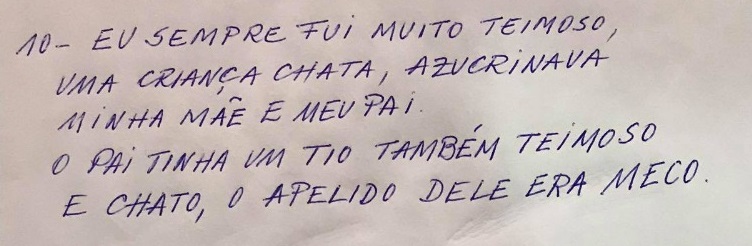 10- EU SEMPRE FUI MUITO TEIMOSO,
UMA CRIANÇA CHATA, AZUCRINAVA
MINHA MÃE E MEU PAI.
O PAI TINHA UM TIO TAMBÉM TEIMOSO
E CHATO, O APELIDO DELE ERA MECO.